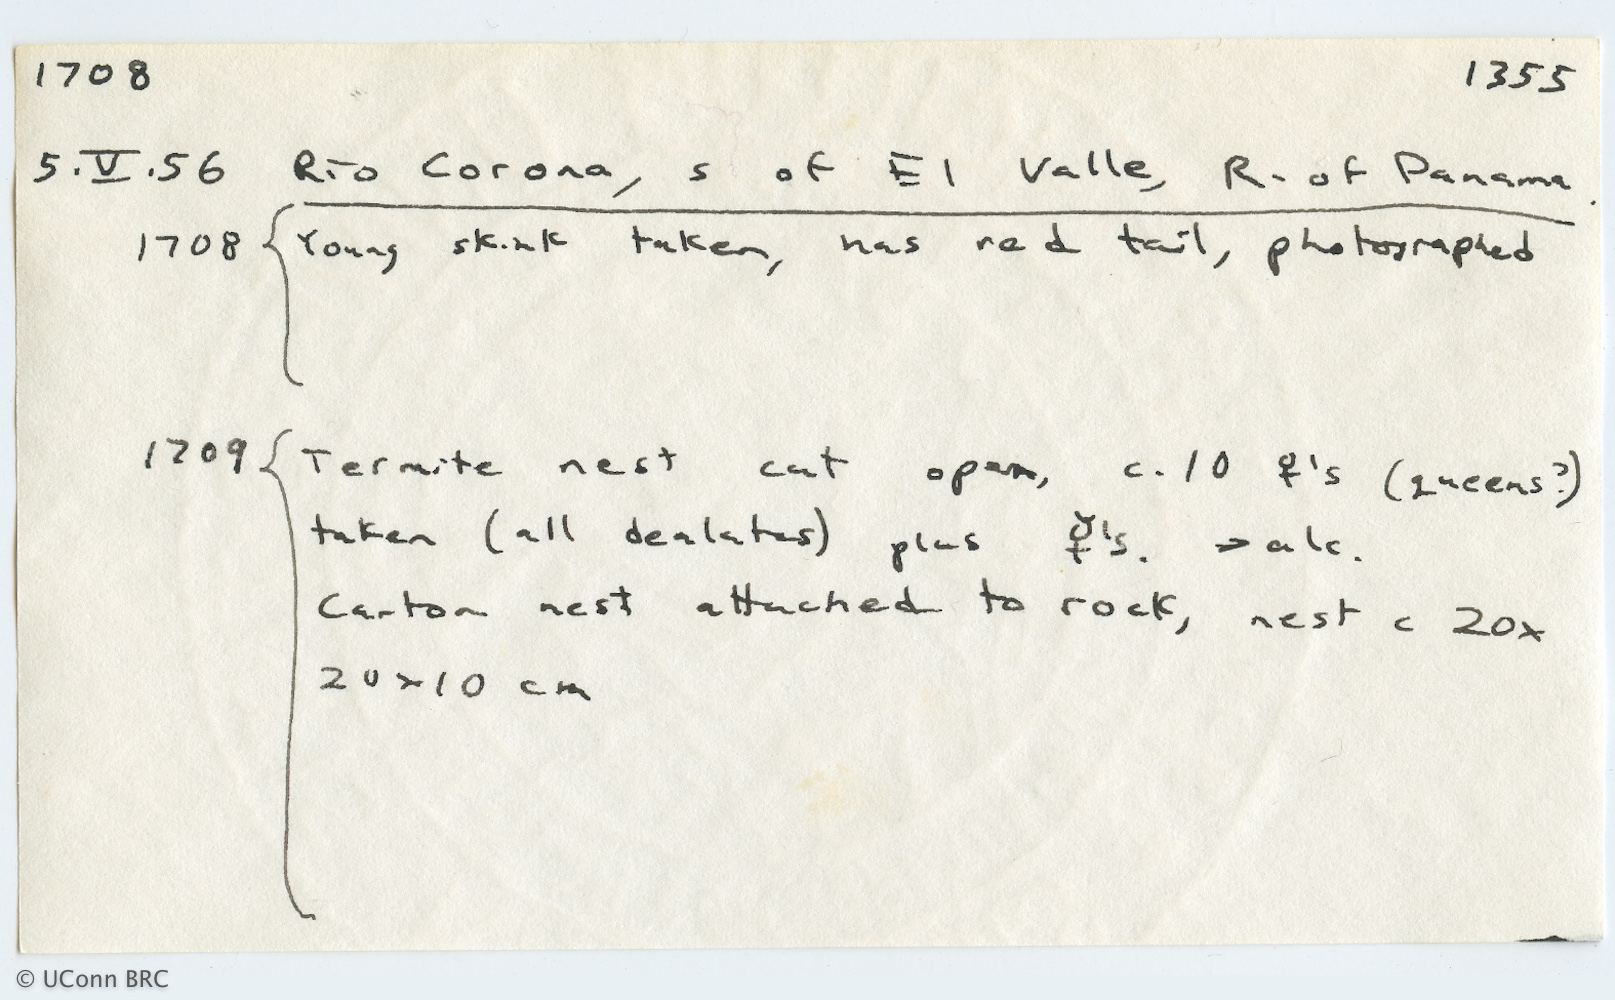 1708 1355
5.V.56 Rio Corona, s of El Valle, R. of Panama.
1708 { Young skink taken, has red tail, photographed
1709 { Termite nest cut open, c. 10 ♀'s (queens?)
taken (all dealates) plus ☿'s. → alc.
Carton nest attached to rock, nest c 20x
20x10 cm
© UConn BRC